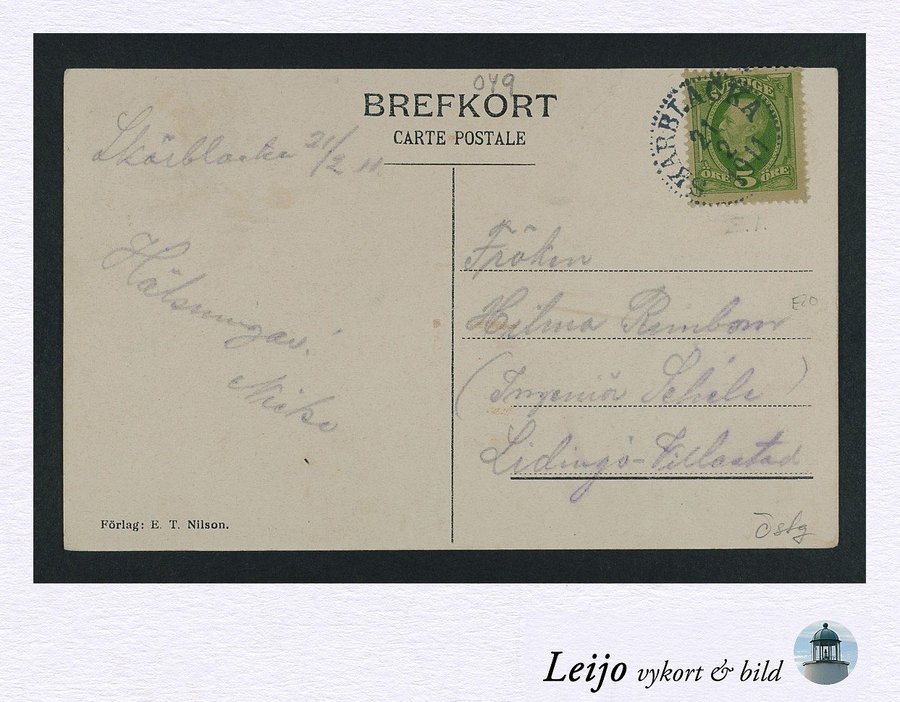 049
BREFKORT
CARTE POSTALE
SKÄRBLACKA
21 2 1911
SVERIGE
5 ÖRE 5 ÖRE
Skärblacka 21/2 11
Hälsningar!
Fröken
Hilma Rembom
E20
(Ingeniör Schéle)
Lidingö-Villastad
Förlag: E. T. Nilson.
Östg
Leijo vykort & bild